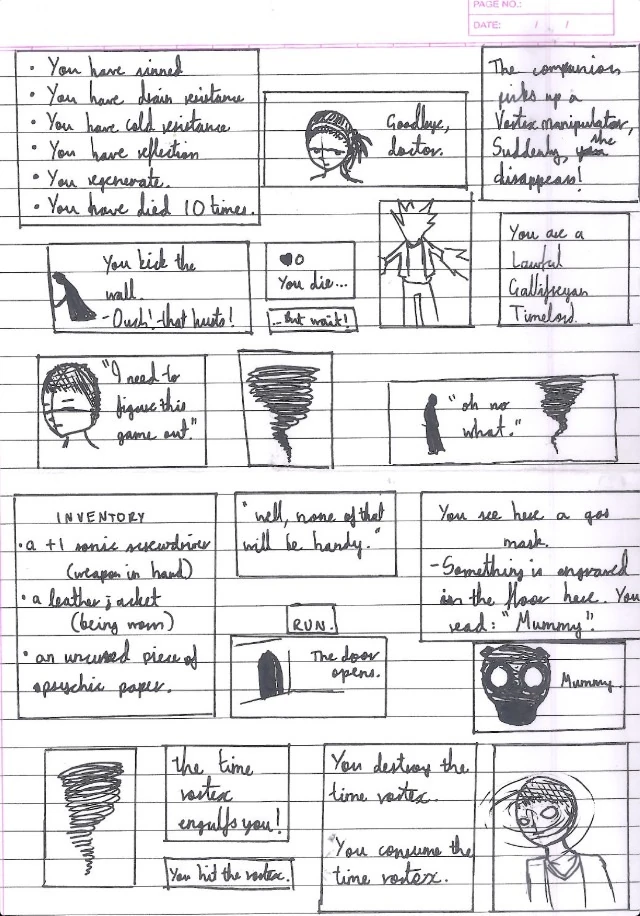 PAGE NO.:
DATE: / /
• You have sinned
• You have drain resistance
• You have cold resistance
• You have reflection
• You regenerate.
• You have died 10 times.
Goodbye,
doctor.
The companion
picks up a
Vortex manipulator,
Suddenly, she
disappears!
You kick the
wall.
- Ouch! that hurts!
♥0
You die...
...But wait!
You are a
Lawful
Gallifreyan
Timelord.
"I need to
figure this
game out."
"oh no
what."
INVENTORY
• a +1 sonic screwdriver
(weapon in hand)
• a leather jacket
(being worn)
• an uncursed piece of
psychic paper.
"well, none of that
will be handy."
You see here a gas
mask.
- Something is engraved
on the floor here. You
read: "Mummy".
RUN.
The door
opens.
Mummy.
the time
vortex
engulfs you!
You hit the vortex.
You destroy the
time vortex.
You consume the
time vortex.